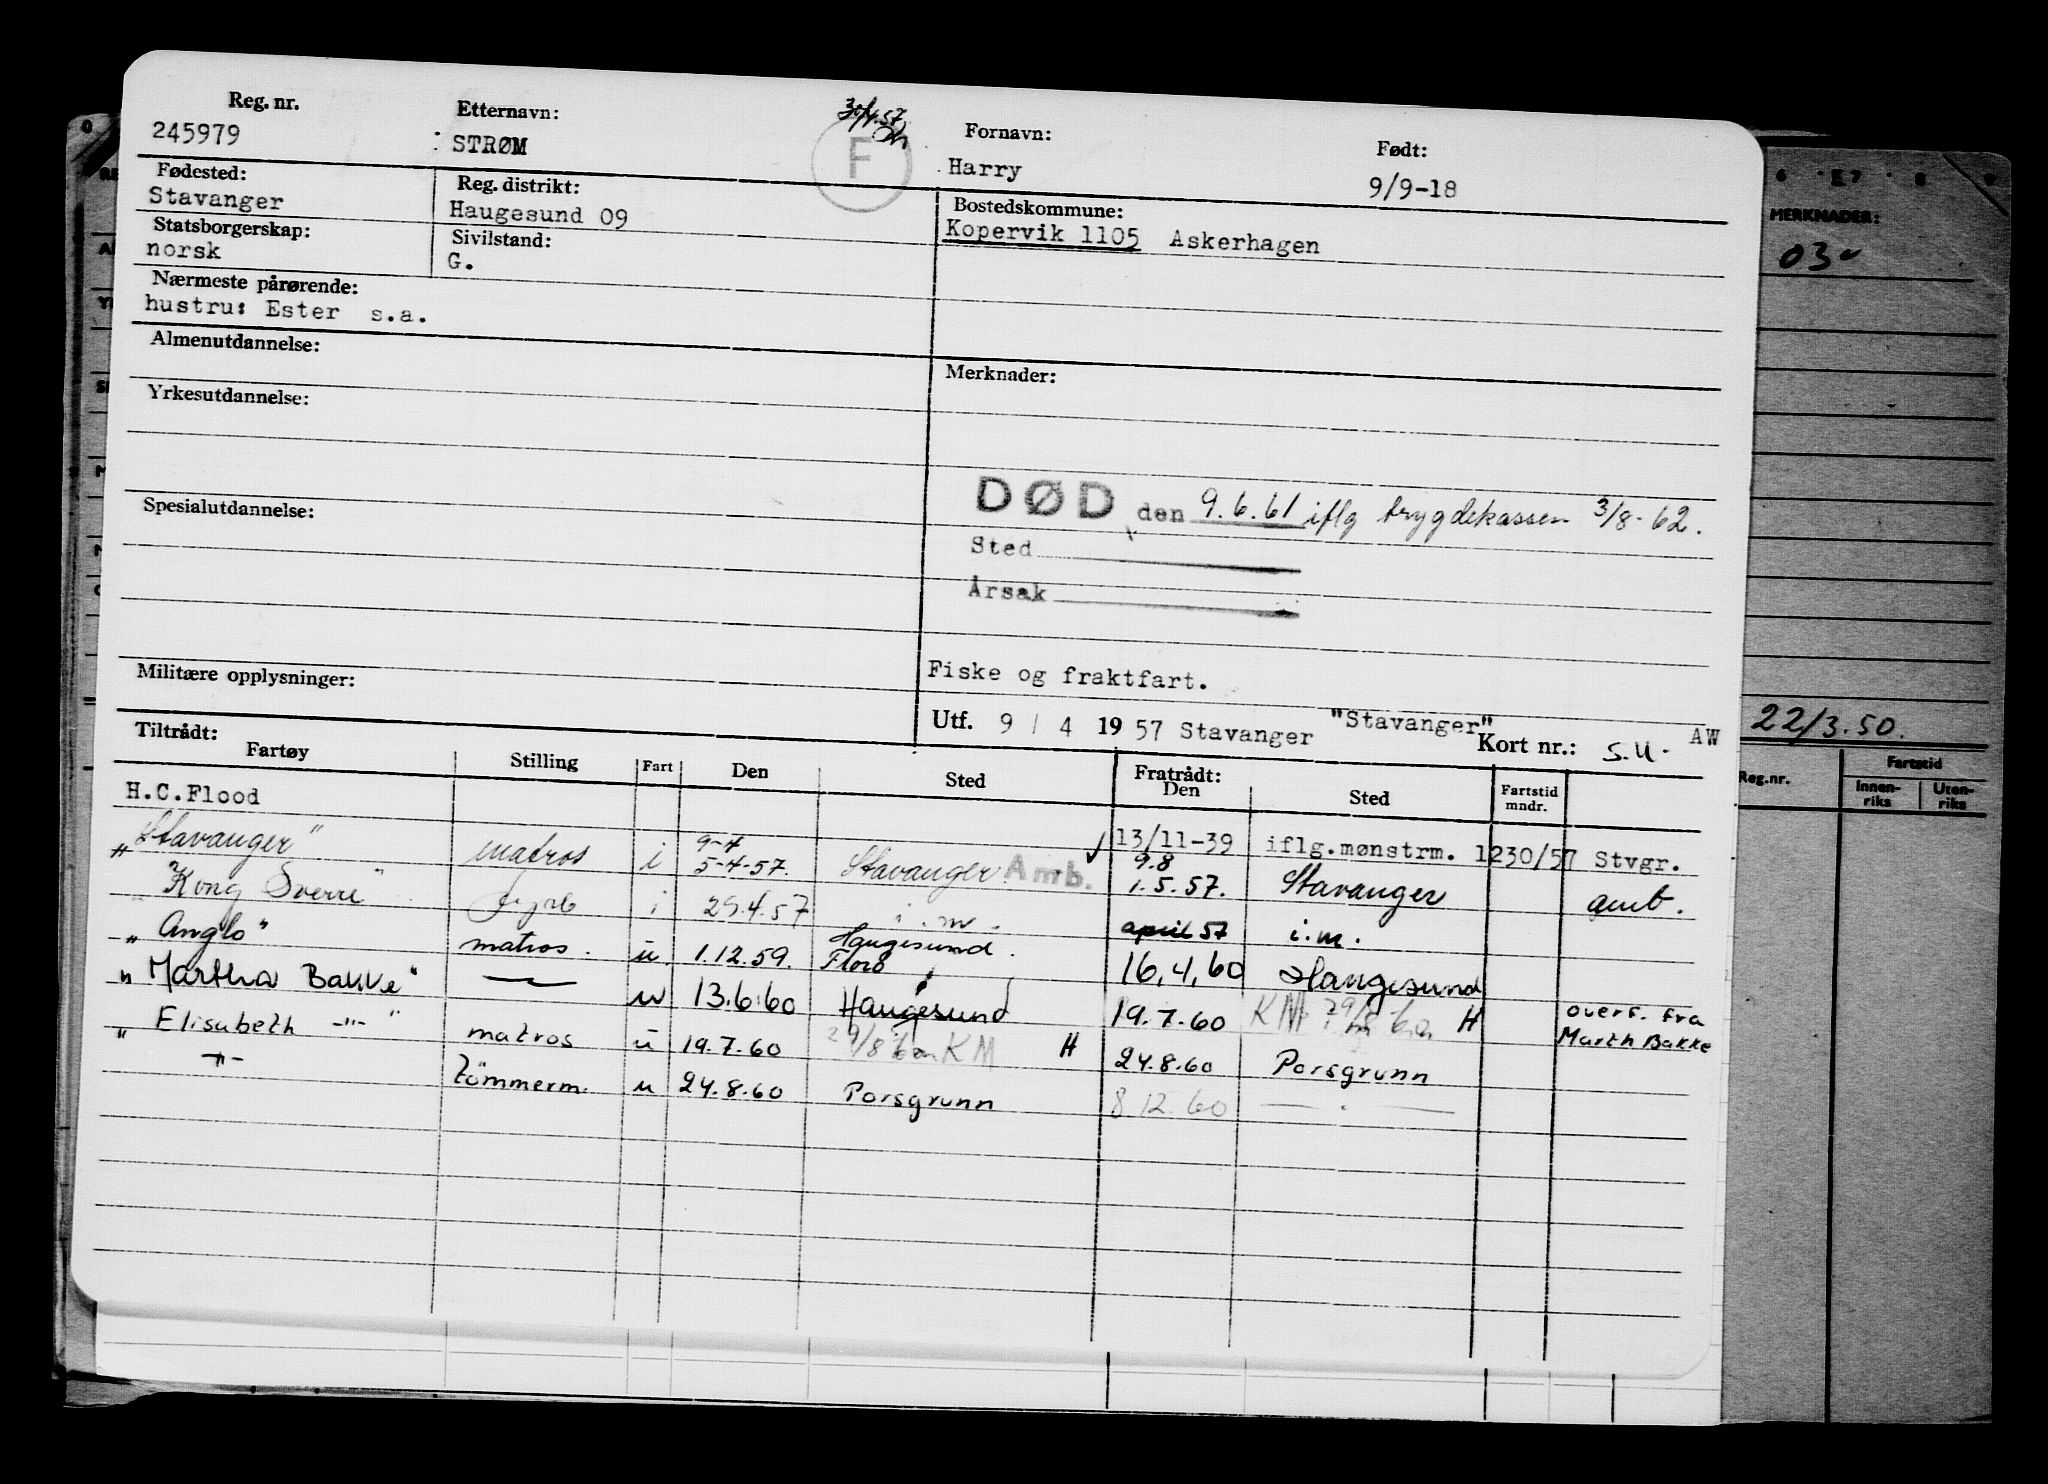 Reg. nr. Etternavn: 30/4.57 Fornavn: Født:
245979 STRØM F Harry 9/9-18
Fødested: Reg. distrikt: Bostedskommune:
Stavanger Haugesund 09 Kopervik 1105 Askerhagen
Statsborgerskap: Sivilstand:
norsk G.
Nærmeste pårørende:
hustru: Ester s.a.
Almenutdannelse: Merknader:
Yrkesutdannelse:
DØD den 9.6.61 iflg trygdekassen 3/8-62.
Spesialutdannelse:
Sted
Årsak
Fiske og fraktfart.
Militære opplysninger:
Utf. 9 / 4 1957 Stavanger "Stavanger" Kort nr.: S.U. AW
Tiltrådt: Fratrådt:
Fartøy Stilling Fart Den Sted Den Sted Fartstid mndr.
H.C.Flood 13/11-39 iflg.mønstrm. 1230/57 Stvgr.
"Stavanger" matros i 9-4 5-4-57. Stavanger Amb. 9.8 1.5.57. Stavanger amb.
"Kong Sverre" i 29.4.57 i.m. april 57 i.m.
"Anglo" matros. u 1.12.59. Haugesund Florø 16,4,60 Haugesund
"Martha Bakke" u 13.6.60 Haugesund 19.7.60 KM 29/8 60 H overf. fra Marth Bakke
" Elisabeth -"- " matros u 19.7.60 29/8 60 KM H 24.8.60 Porsgrunn
" -"- tömmerm. u 24.8.60 Porsgrunn 8 12.60 — . —
0
6 7 8 9
MERKNADER:
03
22/3.50.
Reg.nr. Fartstid
Innen-riks Uten-riks